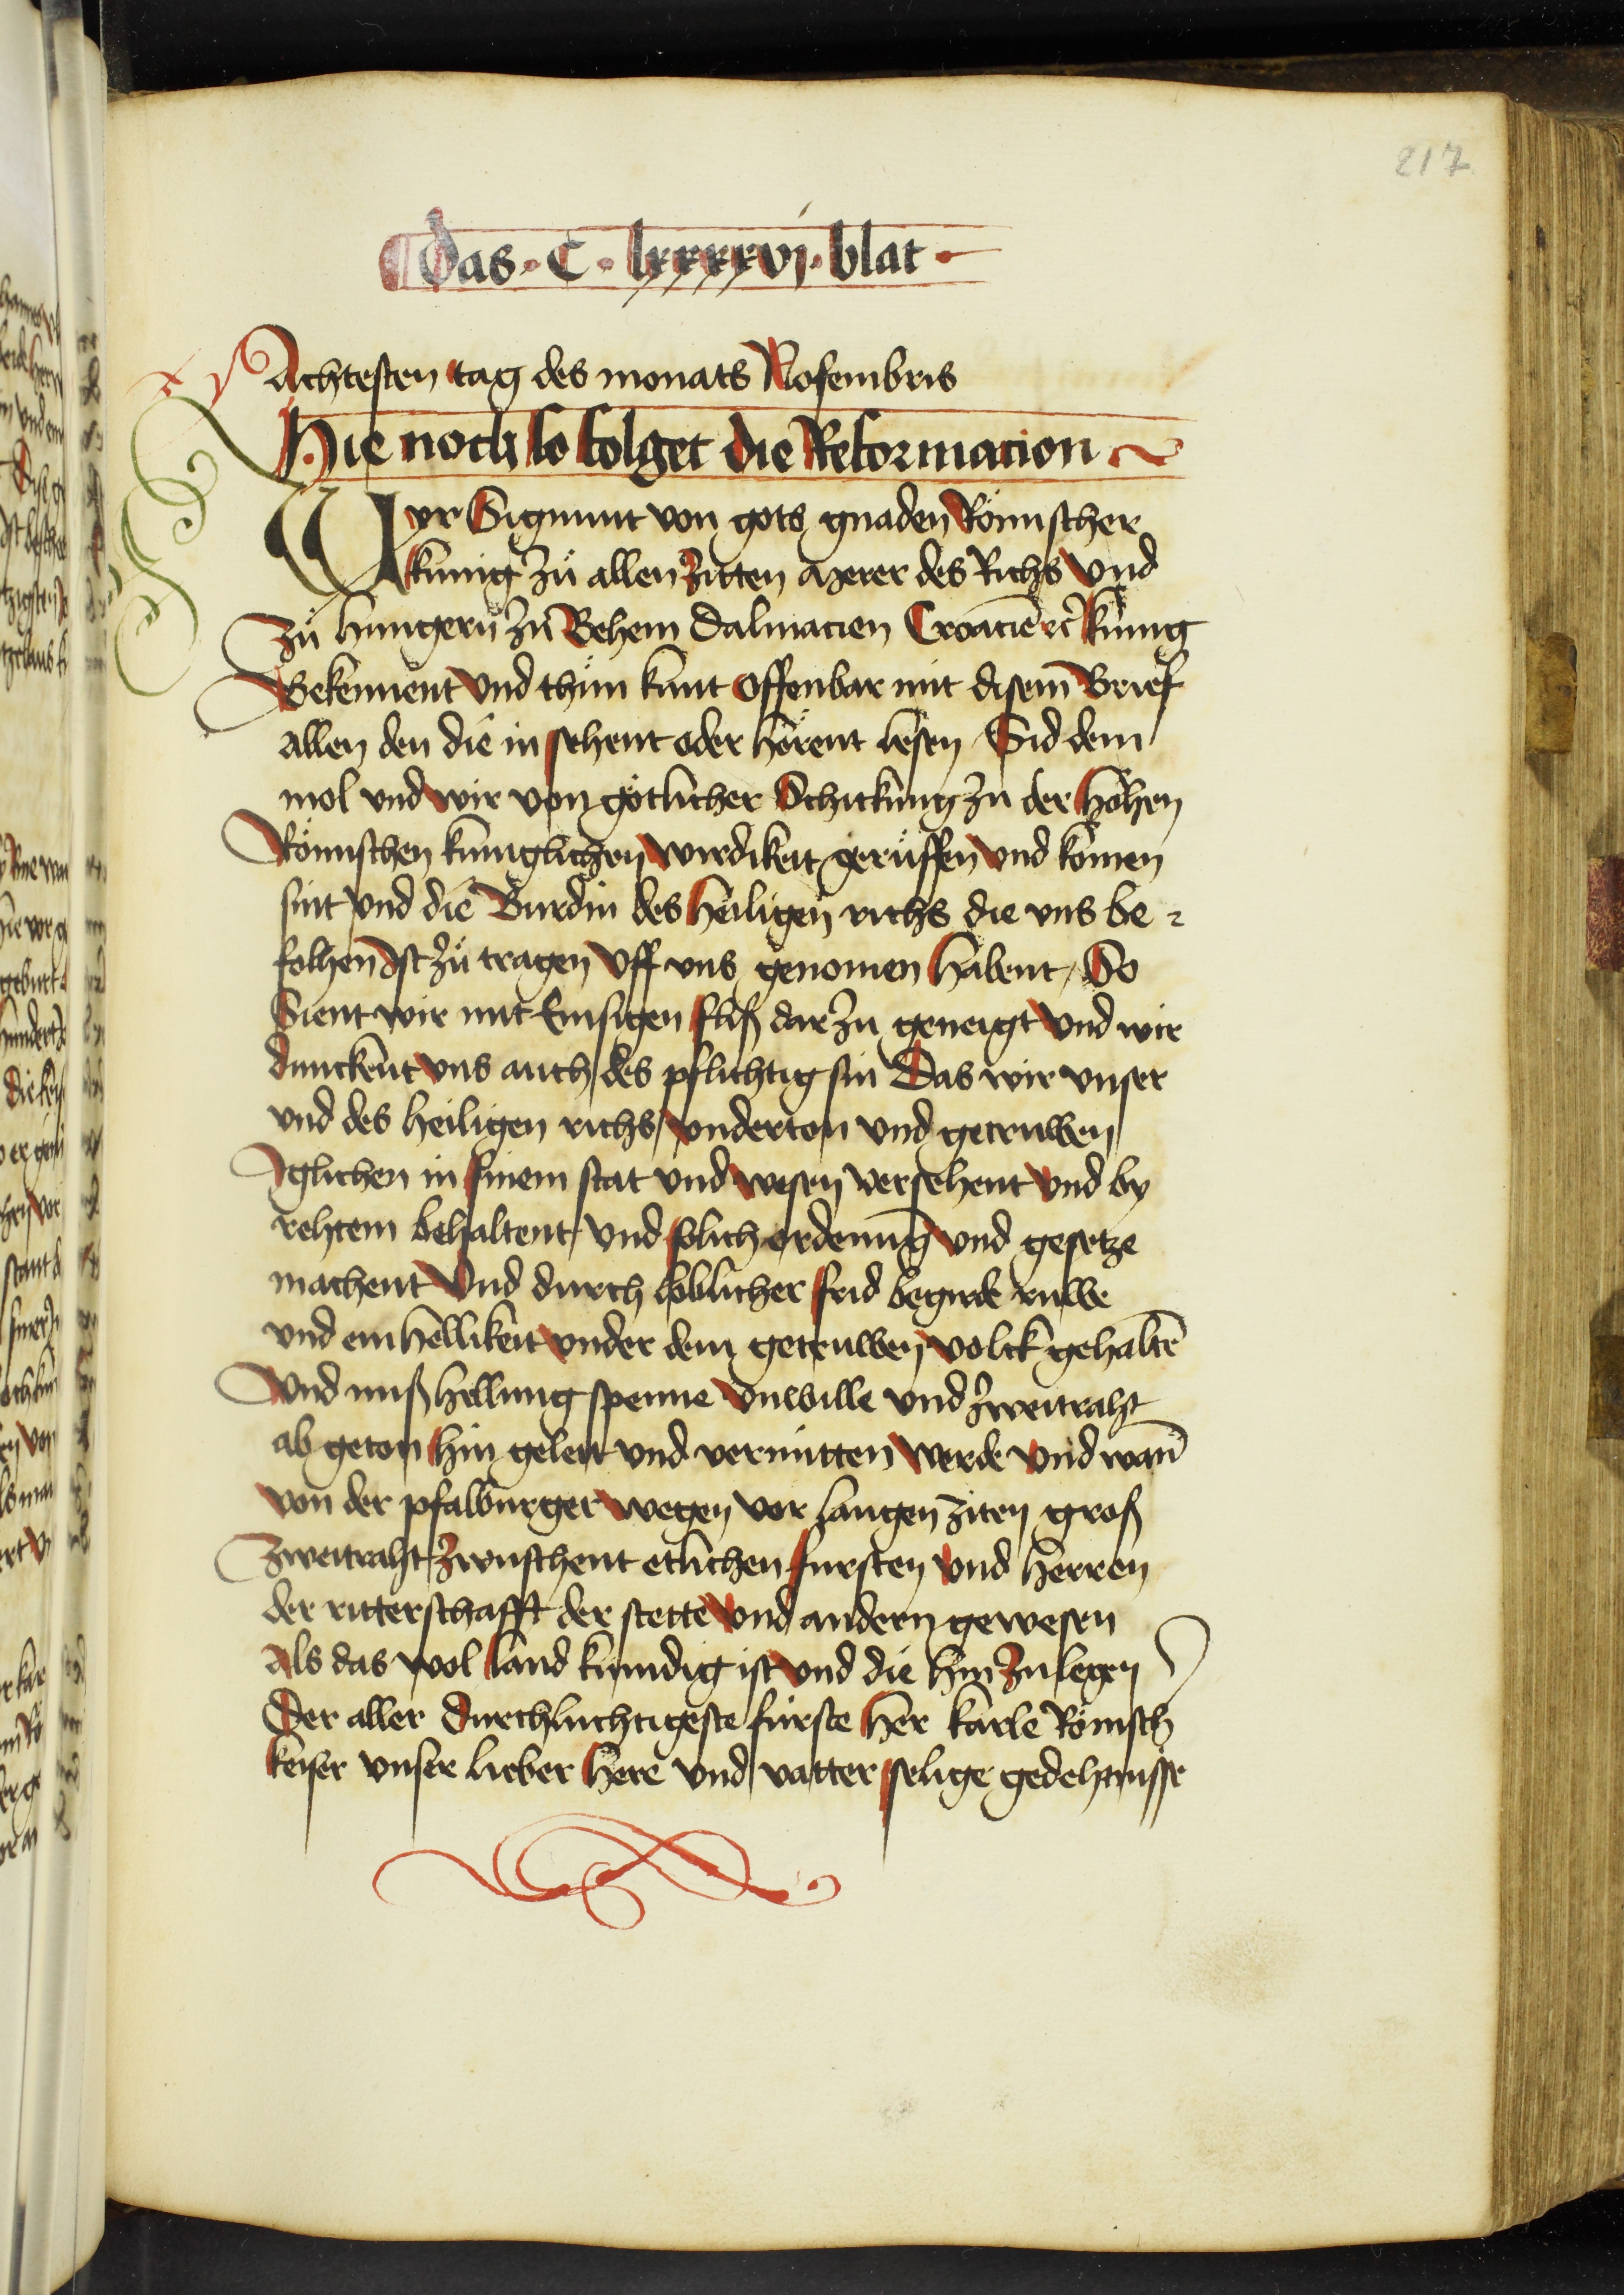 217
das · C · lxxxxvj · blat ·
Achtesten tag des monats Nofembris
Hie noch so folget die Reformacion
Wyr Sigmunt von gots gnaden Römischer
kunig zů allen zitten merer des Richs Vnd
zů hungern zů Behem Dalmacien Croaciē ꝛc̄ kunig
Bekennent Vnd thůn kunt offenbar mit disem Brief
allen den die in sehent oder hörent lesen / Sid dem
mol vnd wir von götlicher Schickung zu der hohen
Römschen kuniglichen wirdikeit gerůffen vnd komen
sint vnd die Burdin des heiligen richs die vns be-
folhen Ist zů tragen Vff vns genomen habent / So
Sient wir mit Emsigen fliß dar zu geneigt Vnd wir
dunckent vns auch des pflichtig sin Das wir vnser
vnd des heiligen richs / vnderton vnd getruwen
Iglichen in sinem stat vnd wesen versehent Vnd by
rehtem behaltent / Vnd solich ordenung vnd gesetze
machent Vnd durch loblicher frid begirde ruwe
vnd einhellikeit vnder dem getruwen volck gehaltē
Vnd mißhellung spenne Vnwille vnd zweitraht
ab geton hin geleit vnd vermitten werde Vnd wañ
von der pfalburger wegen vor langen ziten groß
Zweitraht zwuschent etlichen fursten vnd herren
der ritterschafft der stette Vnd andern gewesen
Als das wol land kundig ist vnd die hin zu legen
Der aller durchluchtigeste fürste her karle Römsch
keiser vnser lieber here vnd vatter selige gedehtnisse